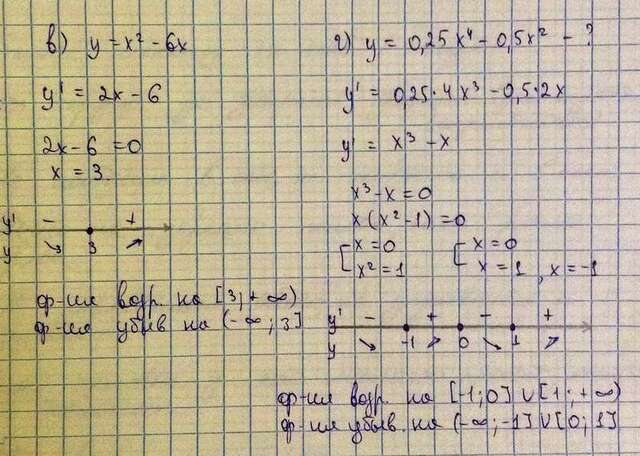 в) y = x² - 6x
y' = 2x - 6
2x - 6 = 0
x = 3
y' - +
y ↘ 3 ↗
ф-ия возр. на [3; +∞)
ф-ия убыв на (-∞; 3]
г) y = 0,25x⁴ - 0,5x² - ?
y' = 0,25·4x³ - 0,5·2x
y' = x³ - x
x³ - x = 0
x(x² - 1) = 0
[ x = 0 [ x = 0
x² = 1 x = 1, x = -1
y' - + - +
y ↘ -1 ↗ 0 ↘ 1 ↗
ф-ия возр. на [-1; 0] ∪ [1; +∞)
ф-ия убыв. на (-∞; -1] ∪ [0; 1]